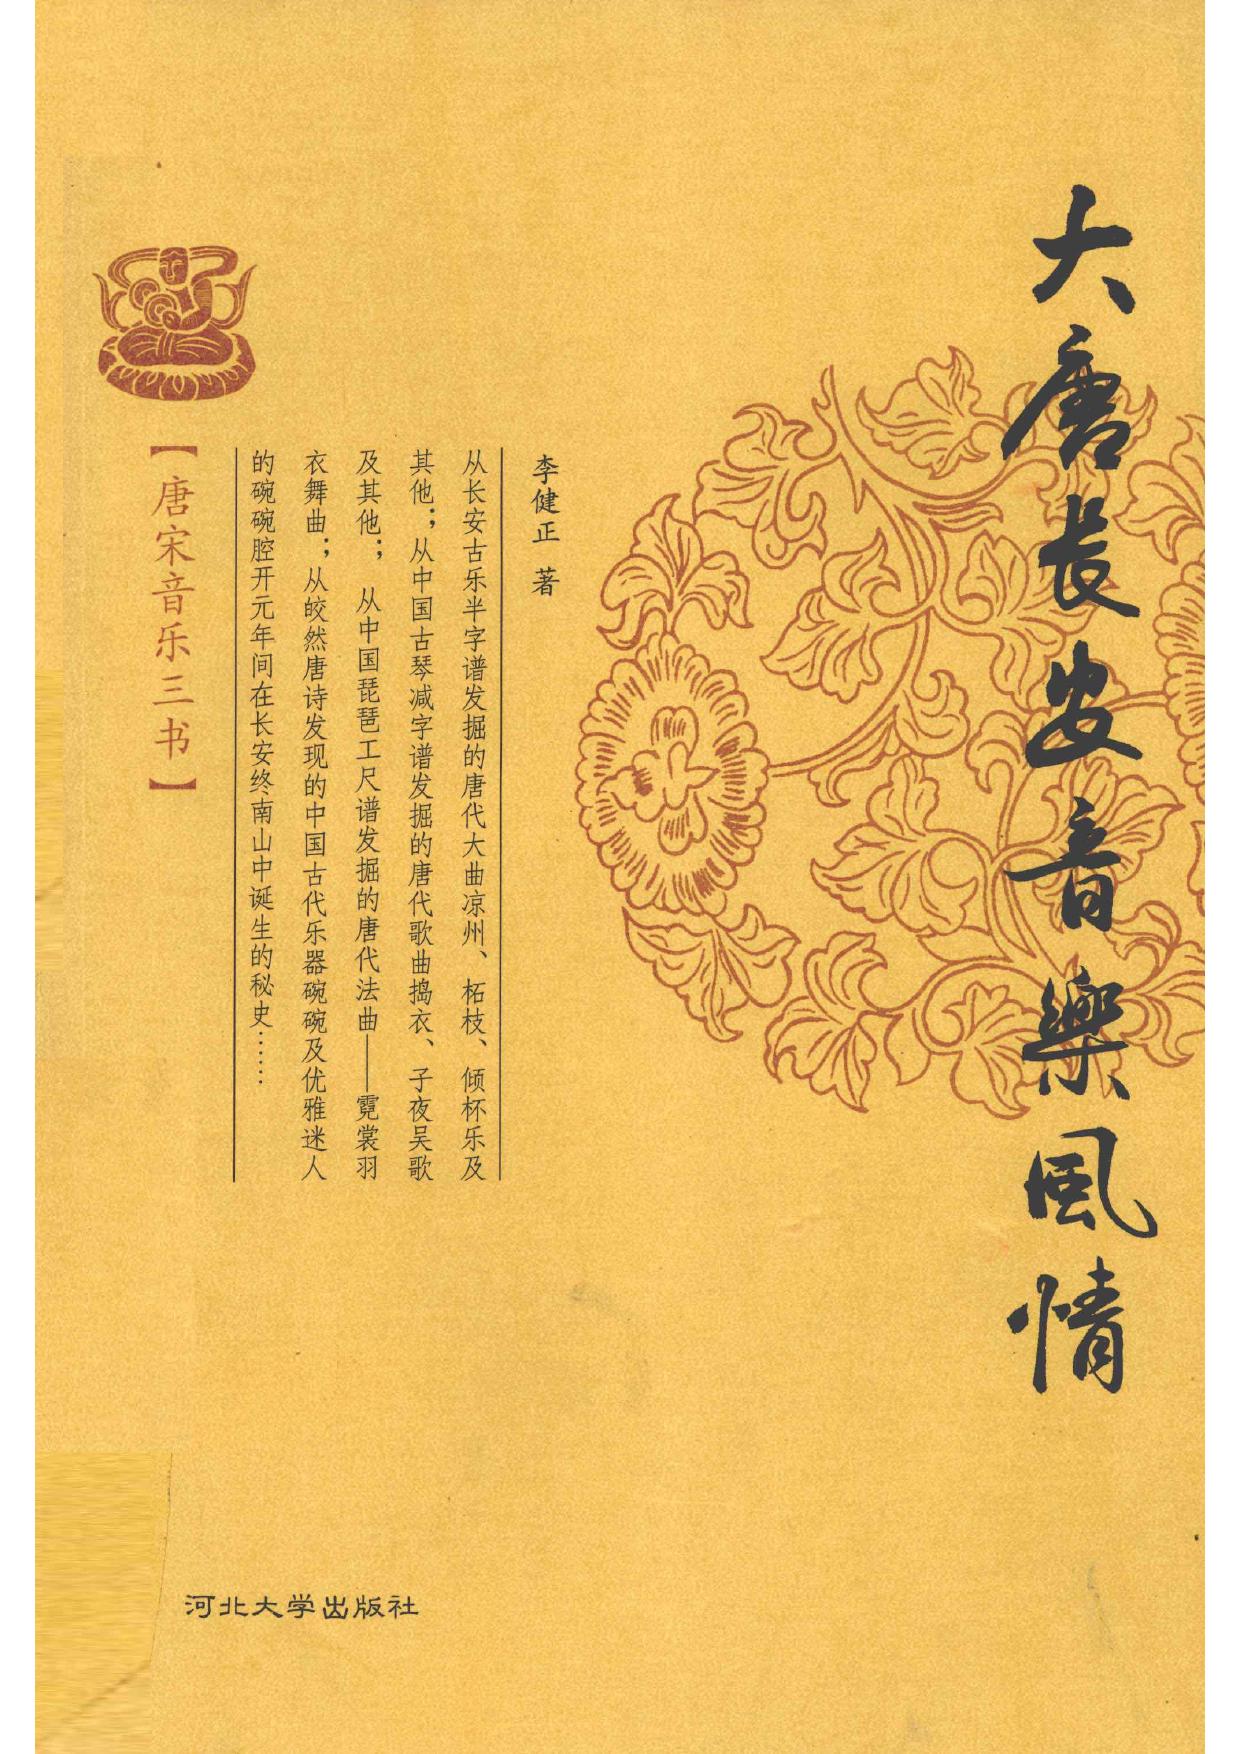 大唐长安音樂風情
李健正 著
从长安古乐半字谱发掘的唐代大曲凉州、柘枝、倾杯乐及
其他；从中国古琴减字谱发掘的唐代歌曲捣衣、子夜吴歌
及其他； 从中国琵琶工尺谱发掘的唐代法曲——霓裳羽
衣舞曲；从皎然唐诗发现的中国古代乐器碗碗及优雅迷人
的碗碗腔开元年间在长安终南山中诞生的秘史……
【唐宋音乐三书】
河北大学出版社